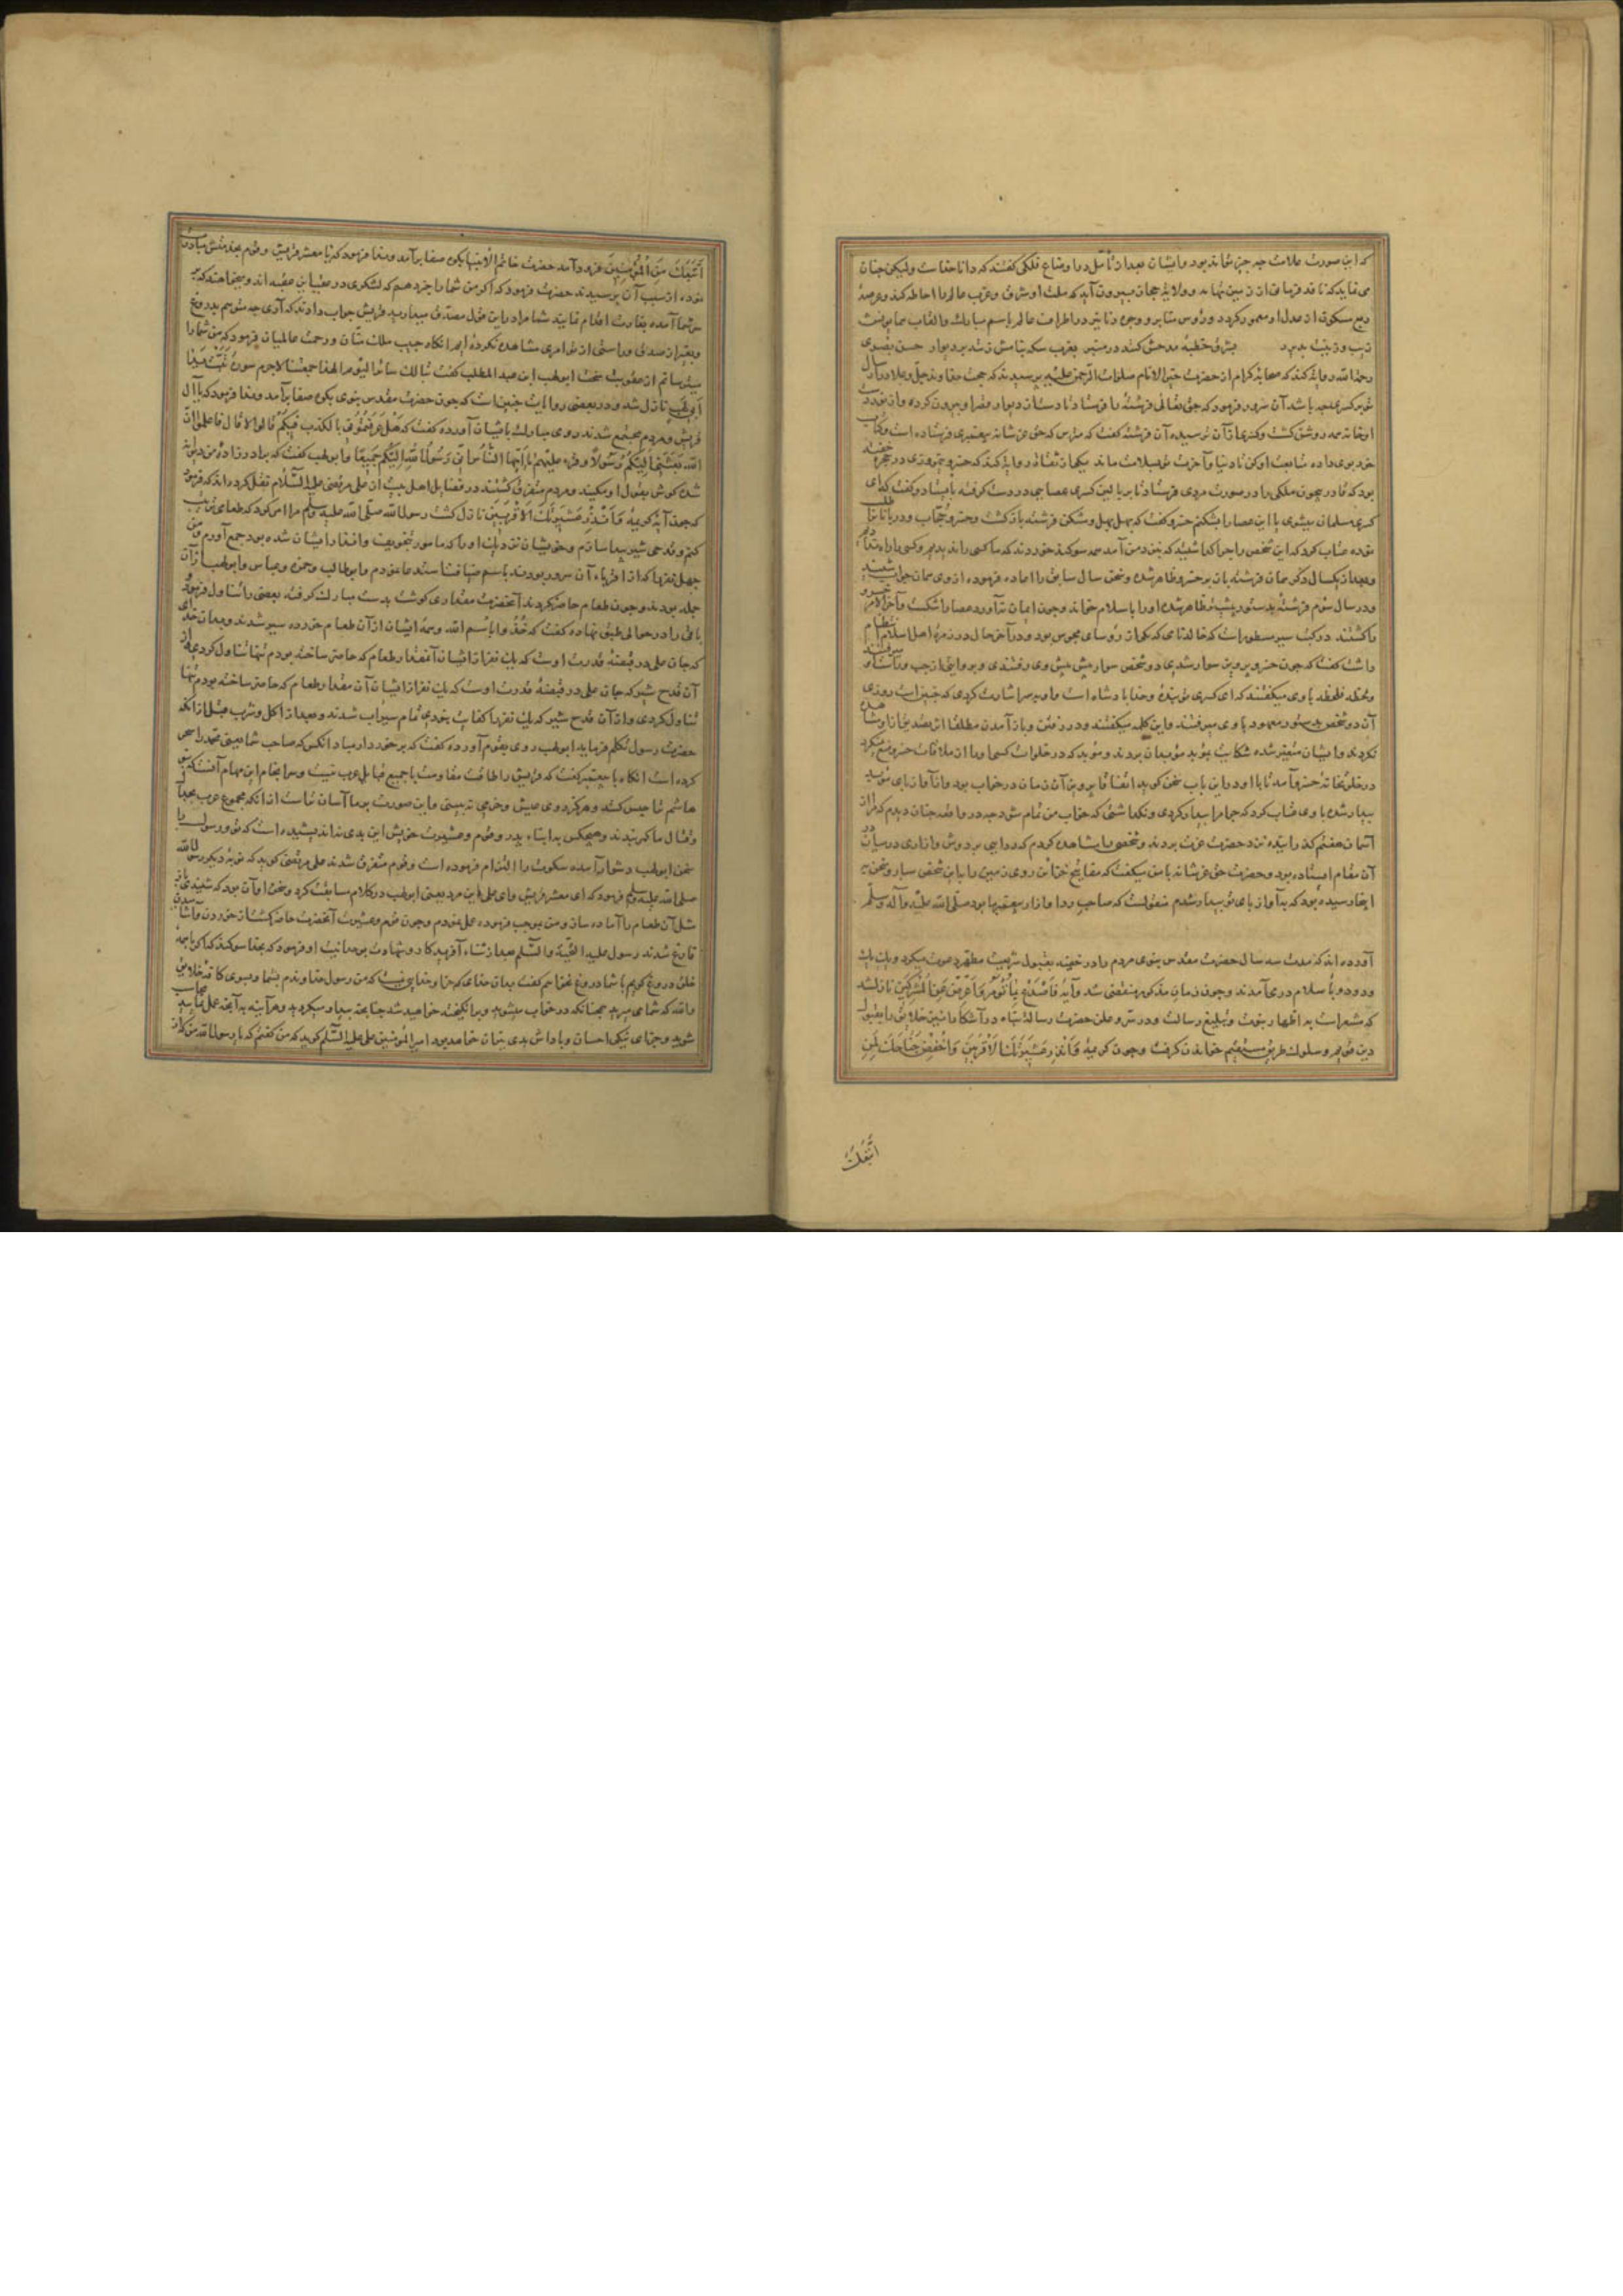 که این صورت علامت چه چیز تواند بود و ایشان بعد از تأمل در اوضاع فلکی گفتند که دانا خداست ولیکن چنان
می نماید که نافذ فرمانی از زمین تهامه و ولایة حجاز بیرون آید که ملت او شرق و غرب عالم را احاطه کند و عرصهٔ
ربع مسکون از عدل او معمور گردد و رؤس منابر و وجوه دنانیر در اطراف عالم باسم مبارک و القاب همایونش
زیب و زینت پذیرد بشرق خطبهٔ مدحش کنند در منبر بغرب سکه بنامش زنند بر دینار حسن بصری
رحمه الله روایة کند که صحابهٔ کرام از حضرت خیر الانام صلوات الرحمن علیه پرسیدند که حجت خداوند جل و علا در
بر کسری چه باشد آن سرور فرمود که حق تعالی فرشتهٔ را فرستاد تا دست از دیوار قصر او بیرون کرده و از نور دست
او خانه همه روشن گشت و کسری از آن ترسیده آن فرشته گفت که مترس که حق عز شانه پیغمبری فرستاده است و کتاب
خود بوی داده متابعت او کن تا دنیا و آخرت تو بسلامت ماند
بود که قادر بیچون ملکی را در صورت مردی فرستاد تا بر بالین کسری عصایی در دست گرفته بایستاد و گفت که ای
کسری مسلمان میشوی یا این عصا را بشکنم خسرو گفت که بهل بهل و مشکن فرشته بازگشت و خسرو حجاب و دربانان را
نموده عتاب کرد که این شخص را چرا گذاشتید که بنزد من آمد همه سوگند خوردند که ما کسی را ندیدیم و کسی را راه ندادیم
و بعد از یکسال دیگر همان فرشته باز بر خسرو ظاهر شده و سخن سال سابق را اعاده فرموده از وی همان جواب شنید
و در سال سوم فرشته بدستور پیشتر ظاهر شده او را باسلام خواند و چون ایمان نیاورد عصا را شکست و آخر الامر خسرو
را کشتند در کتب سیر مسطور است که خالد نامی که یکی از رؤسای مجوس بود و در آخر حال در زمرهٔ اهل اسلام انتظام
داشت گفت که چون خسرو پرویز سوار شدی دو شخص سوار پیش پیش وی رفتندی و بروایتی از چپ و راست او میرفتند
و لحظه فلحظه با وی میگفتند که ای کسری تو بنده و خدا پادشاه است و او بسر اشارت کردی که چنین است روزی
آن دو شخص بدستور معهود با وی میرفتند و این کلمه میگفتند و در رفتن و باز آمدن مطلقا اثر تصدیق از او مشاهده
نکردند و ایشان متغیر شده شکایت بموبد موبدان بردند و موبد که در خلوات کسما و را از ملاقات خسرو منع نمیکرد
در خلوتخانه خسرو آمد تا با او در این باب سخن گوید اتفاقا پرویز آن زمان در خواب بود و از آواز پای موبد
بیدار شده با وی عتاب کرد که چرا مرا بیدار کردی و نگذاشتی که خواب من تمام شود چه در واقعه چنان دیدم که مرا از
آسمان هفتم گذرانیده نزد حضرت عزت بردند و شخصی را مشاهده کردم که ردایی بر دوش و ازاری در میان
آن مقام ایستاده بود و حضرت حق عز شانه با من میگفت که مفاتیح خزاین روی زمین را باین شخص سپار و سخن
اینجا رسیده بود که به آواز پای تو بیدار شدم منقولست که صاحب ردا و ازار پیغمبر ما بود صلی الله علیه و آله وسلم
آورده اند که مدت سه سال حضرت مقدس نبوی مردم را در خفیه بقبول شریعت مطهره دعوت میکرد و یک یک
و دو دو باسلام در می آمدند و چون زمان مذکور منقضی شد و آیه فَاصْدَعْ بِمَا تُؤْمَرُ وَأَعْرِضْ عَنِ الْمُشْرِكِينَ نازل شد
که مشعر است به اظهار نبوت و تبلیغ رسالت و در سر و علن حضرت رسالة پناه در آشکارا نیز خلایق را بقبول
دین قویم و سلوک طریق مستقیم خواندن گرفت و چون کریمهٔ وَأَنْذِرْ عَشِيرَتَكَ الْأَقْرَبِينَ وَاخْفِضْ جَنَاحَكَ لِمَنِ
اتبعک
اتَّبَعَكَ مِنَ الْمُؤْمِنِينَ فرود آمد حضرت خاتم الانبیا بکوه صفا برآمد و ندا فرمود که یا معشر قریش و قوم بخدمتش مبادرت
نموده از سبب آن پرسیدند حضرت فرمود که اگر من شما را خبر دهم که لشکری در عقب این عقبه اند و میخواهند که بر
سر شما آمده بغارت اقدام نمایند شما مرا در این قول مصدق میدارید قریش جواب دادند که آری چه متوسم بدروغ
و بغیر از صدق و راستی از تو امری مشاهده نکرده ایم آنگاه حبیب ملک منان و رحمت عالمیان فرمود که من شما را
میترسانم از عقوبت سخت ابو لهب ابن عبد المطلب گفت تبا لک سائر الیوم الهذا جمعتنا لاجرم سورهٔ تَبَّتْ يَدَا
أَبِي لَهَبٍ نازل شد و در بعضی روایات چنین است که چون حضرت مقدس نبوی بکوه صفا برآمد و ندا فرمود که یا آل
قریش و مردم مجتمع شدند روی مبارک بایشان آورده گفت که هل عرفتمونی بالکذب فیکم قالوا لا قال فاعلموا ان
الله بعثنی الیکم رسولا و قرء علیهم یا ایها الناس انی رسول الله الیکم جمیعا و ابو لهب گفت که برادرزادهٔ من دیوانه
شده گوش بقول او مکنید و مردم متفرق گشتند در فضایل اهل بیت از علی مرتضی علیه السلام نقل کرده اند که فرمود
که چون آیهٔ کریمهٔ وَأَنْذِرْ عَشِيرَتَكَ الْأَقْرَبِينَ نازل گشت رسول الله صلی الله علیه وسلم مرا امر کرد که طعامی ترتیب
کنم و قدحی شیر مهیا سازم و خویشان نزدیک او را که مامور بتخویف و انذار ایشان شده بود جمع آورم و من
چهل نفر را که از اقرباء آن سرور بودند باسم ضیافت استدعا نمودم و ابو طالب و حمزه و عباس و ابو لهب از آن
جمله بودند و چون طعام حاضر کردند آنحضرت مقداری گوشت بدست مبارک گرفته بعضی را تناول فرمود و
باقی را در حوالی طبق نهاده گفت که خذوا باسم الله و همهٔ ایشان از آن طعام خورده سیر شدند و بدان خدای
که جان علی در قبضهٔ قدرت اوست که یک نفر از ایشان آنمقدار طعام که حاضر ساخته بودم تنها تناول کردی و از
آن قدح شیر که جان علی در قبضهٔ قدرت اوست که یک نفر از ایشان آن مقدار طعام که حاضر ساخته بودم تنها
تناول کردی و از آن قدح شیر که یک نفر را کفایت نبودی تمام سیراب شدند و بعد از اکل و شرب قبل از آنکه
حضرت رسول تکلم فرماید ابو لهب روی بقوم آورده گفت که برخوردار مباد آنکس که صاحب شما یعنی محمد را سحر
کرده است آنگاه با پیغمبر گفت که قریش را طاقت مقاومت با جمیع قبایل عرب نیست و سرانجام این مهام آنست که بنی
هاشم ترا حبس کنند و هرگز روی عیش و خرمی نبینی و این صورت بر ما آسان تر است از آنکه مجموع عرب بحرب
و قتال ما کمر بندند و هیچکس به ابناء پدر و قوم و عشیرت خویش این بدی نیاندیشیده است که تو و رسول را
سخن ابو لهب دشوار آمده سکوت را التزام فرموده است و قوم متفرق شدند علی مرتضی گوید که نوبهٔ دیگر رسول الله
صلی الله علیه وسلم فرمود که ای معشر قریش و ای علی این مرد یعنی ابو لهب در کلام مسابقت کرد و سخن او آن بود که شنیدی باز
مثل آن طعام را آماده ساز و من بموجب فرموده عمل نمودم و چون قوم و عشیرت آنحضرت حاضر گشتند از خوردن و آشامیدن
فارغ شدند رسول علیه التحیة والسلم بعد از ثناء آفریدگار و شهادت بوحدانیت او فرمود که بخدا سوگند که اگر با همه
خلق دروغ گویم با شما دروغ نخواهم گفت بدان خدای که جز او خدایی نیست که من رسول خداوندم بشما و بسوی کافهٔ خلایق
والله که شما می میرید همچنانکه در خواب میشوید و برانگیخته خواهید شد چنانچه بیدار میگردید و هر آینه به آنچه عمل نمایید محاسب
شوید و جزای نیکی احسان و پاداش بدی نیران خواهد بود امیر المؤمنین علی علیه السلم گوید که من گفتم که یا رسول الله من که از